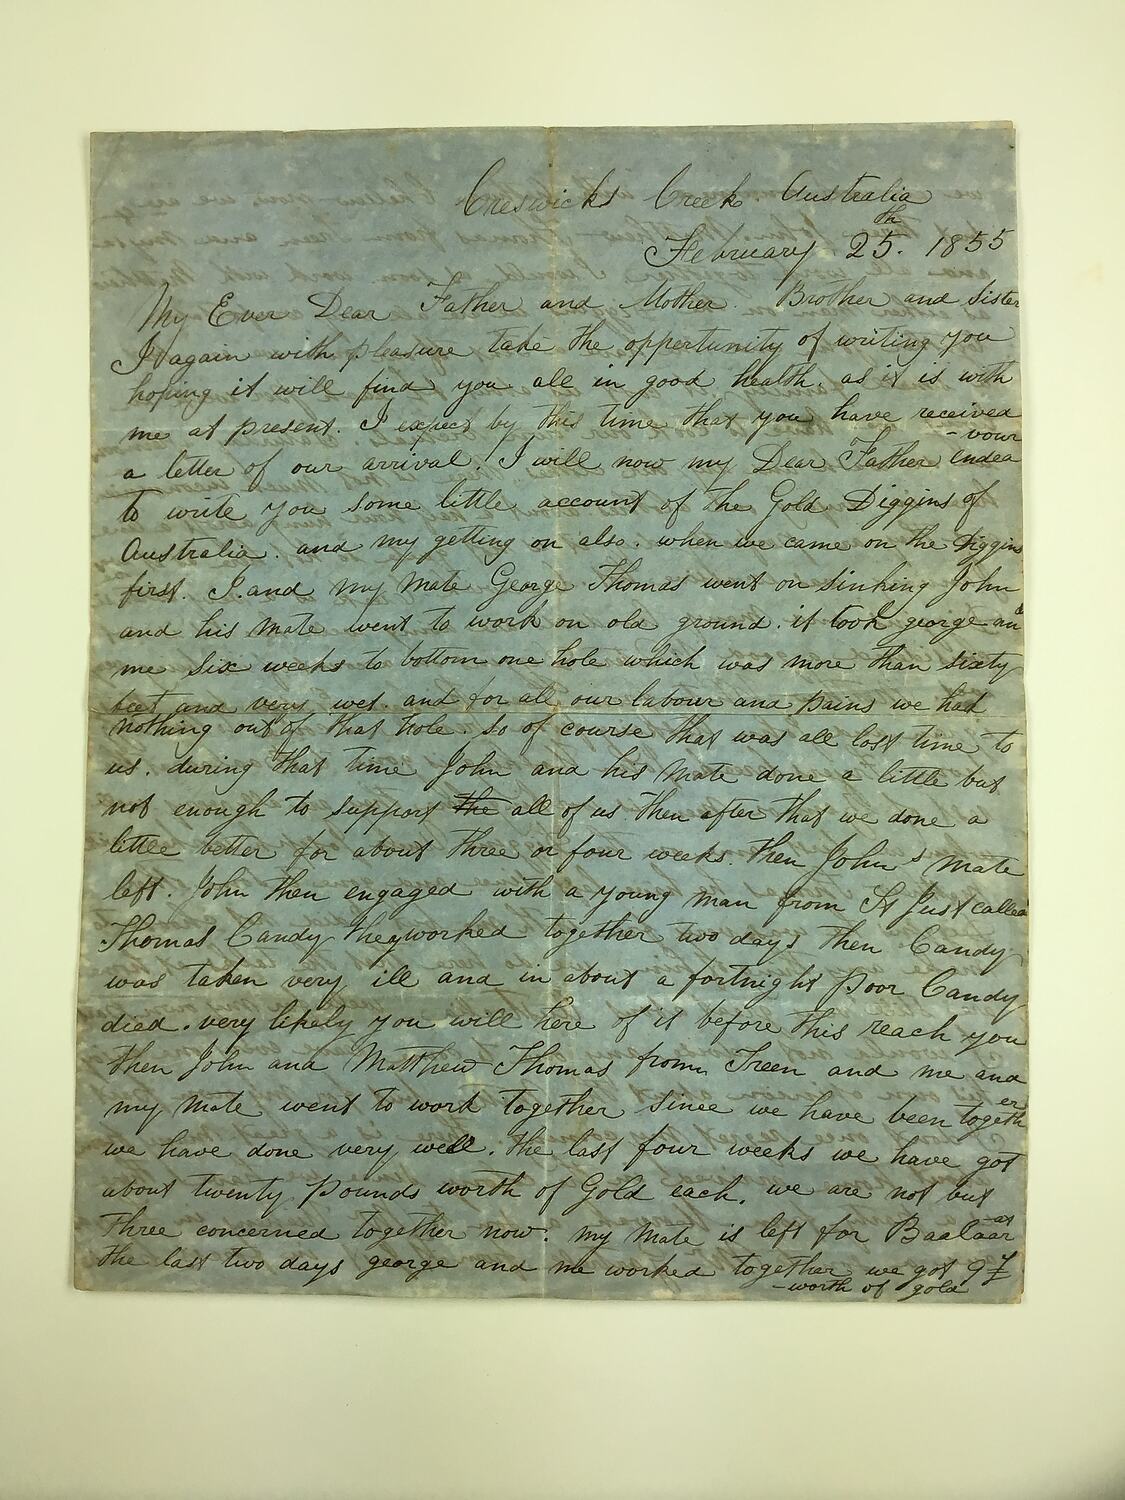 Creswicks Creek Australia
February 25th. 1855
My Ever Dear Father and Mother. Brother and Sister
I again with pleasure take the oppertunity of writing you
hoping it will find you all in good health. as it is with
me at present. I expect by this time that you have received
a letter of our arrival. I will now my Dear Father endea-vour
to write you some little account of the Gold Diggins of
Australia. and my getting on also. when we came on the Diggins
first. I. and my mate George Thomas went on sinking John
and his mate went to work on old ground. it took george and
me six weeks to bottom one hole which was more than sixty
feet and very wet. and for all our labour and pains we had
nothing out of that hole. so of course that was all lost time to
us. during that time John and his mate done a little but
not enough to support the all of us. then after that we done a
little better for about three or four weeks. then John's mate
left. John then engaged with a young man from St Just called
Thomas Candy they worked together two days then Candy
was taken very ill and in about a fortnight poor Candy
died. very likely you will here of it before this reach you
then John and Matthew Thomas from Treen and me and
my mate went to work together since we have been together
we have done very well. the last four weeks we have got
about twenty pounds worth of Gold each. we are not but
three concerned together now. my mate is left for Baalaarat
the last two days george and me worked together we got 9£
-worth of gold